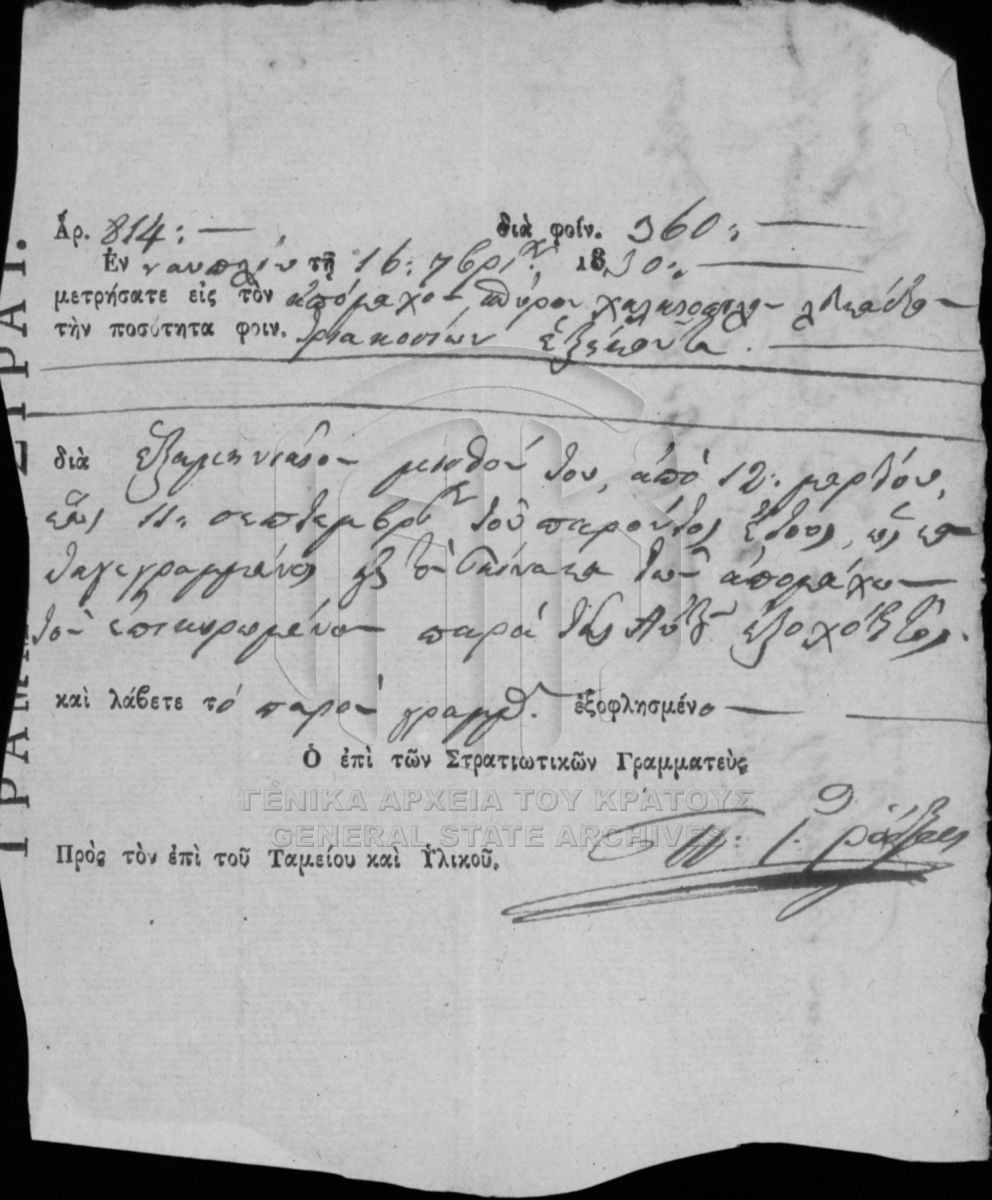 Ἀρ. 814: — διὰ φοίν. 360: —
Ἐν ναυπλίῳ τῇ 16: 7βρίου 1830: —
μετρήσατε εἰς τὸν ἀπόμαχον σπύρον
τὴν ποσότητα φοιν. τριακοσίων ἑξήκοντα. —
διὰ ἑξαμηνιαῖον μισθόν του, ἀπὸ 12: μαρτίου,
ἕως 11: σεπτεμβρίου τοῦ παρόντος ἔτους, ὡς κα
ταγεγραμμένος εἰς τὸν πίνακα τῶν ἀπομάχων
τὸν ἐπικυρωμένον παρὰ τῆς Αὐτοῦ ἐξοχότητος.
καὶ λάβετε τὸ παρὸν γραμμ. ἐξοφλησμένο —
Ὁ ἐπὶ τῶν Στρατιωτικῶν Γραμματεὺς
ΓΕΝΙΚΑ ΑΡΧΕΙΑ ΤΟΥ ΚΡΑΤΟΥΣ
GENERAL STATE ARCHIVES
Πρὸς τὸν ἐπὶ τοῦ Ταμείου καὶ Ὑλικοῦ.